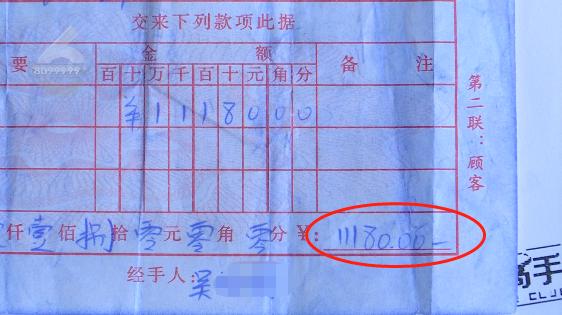 交来下列款项此据
8099999
要 金 额 备 注
百 十 万 千 百 十 元 角 分
¥ 1 1 1 8 0 0 0
仟 壹 佰 捌 拾 零 元 零 角 零 分 ¥: 11180.00
经手人: 吴
第二联：顾客
高手